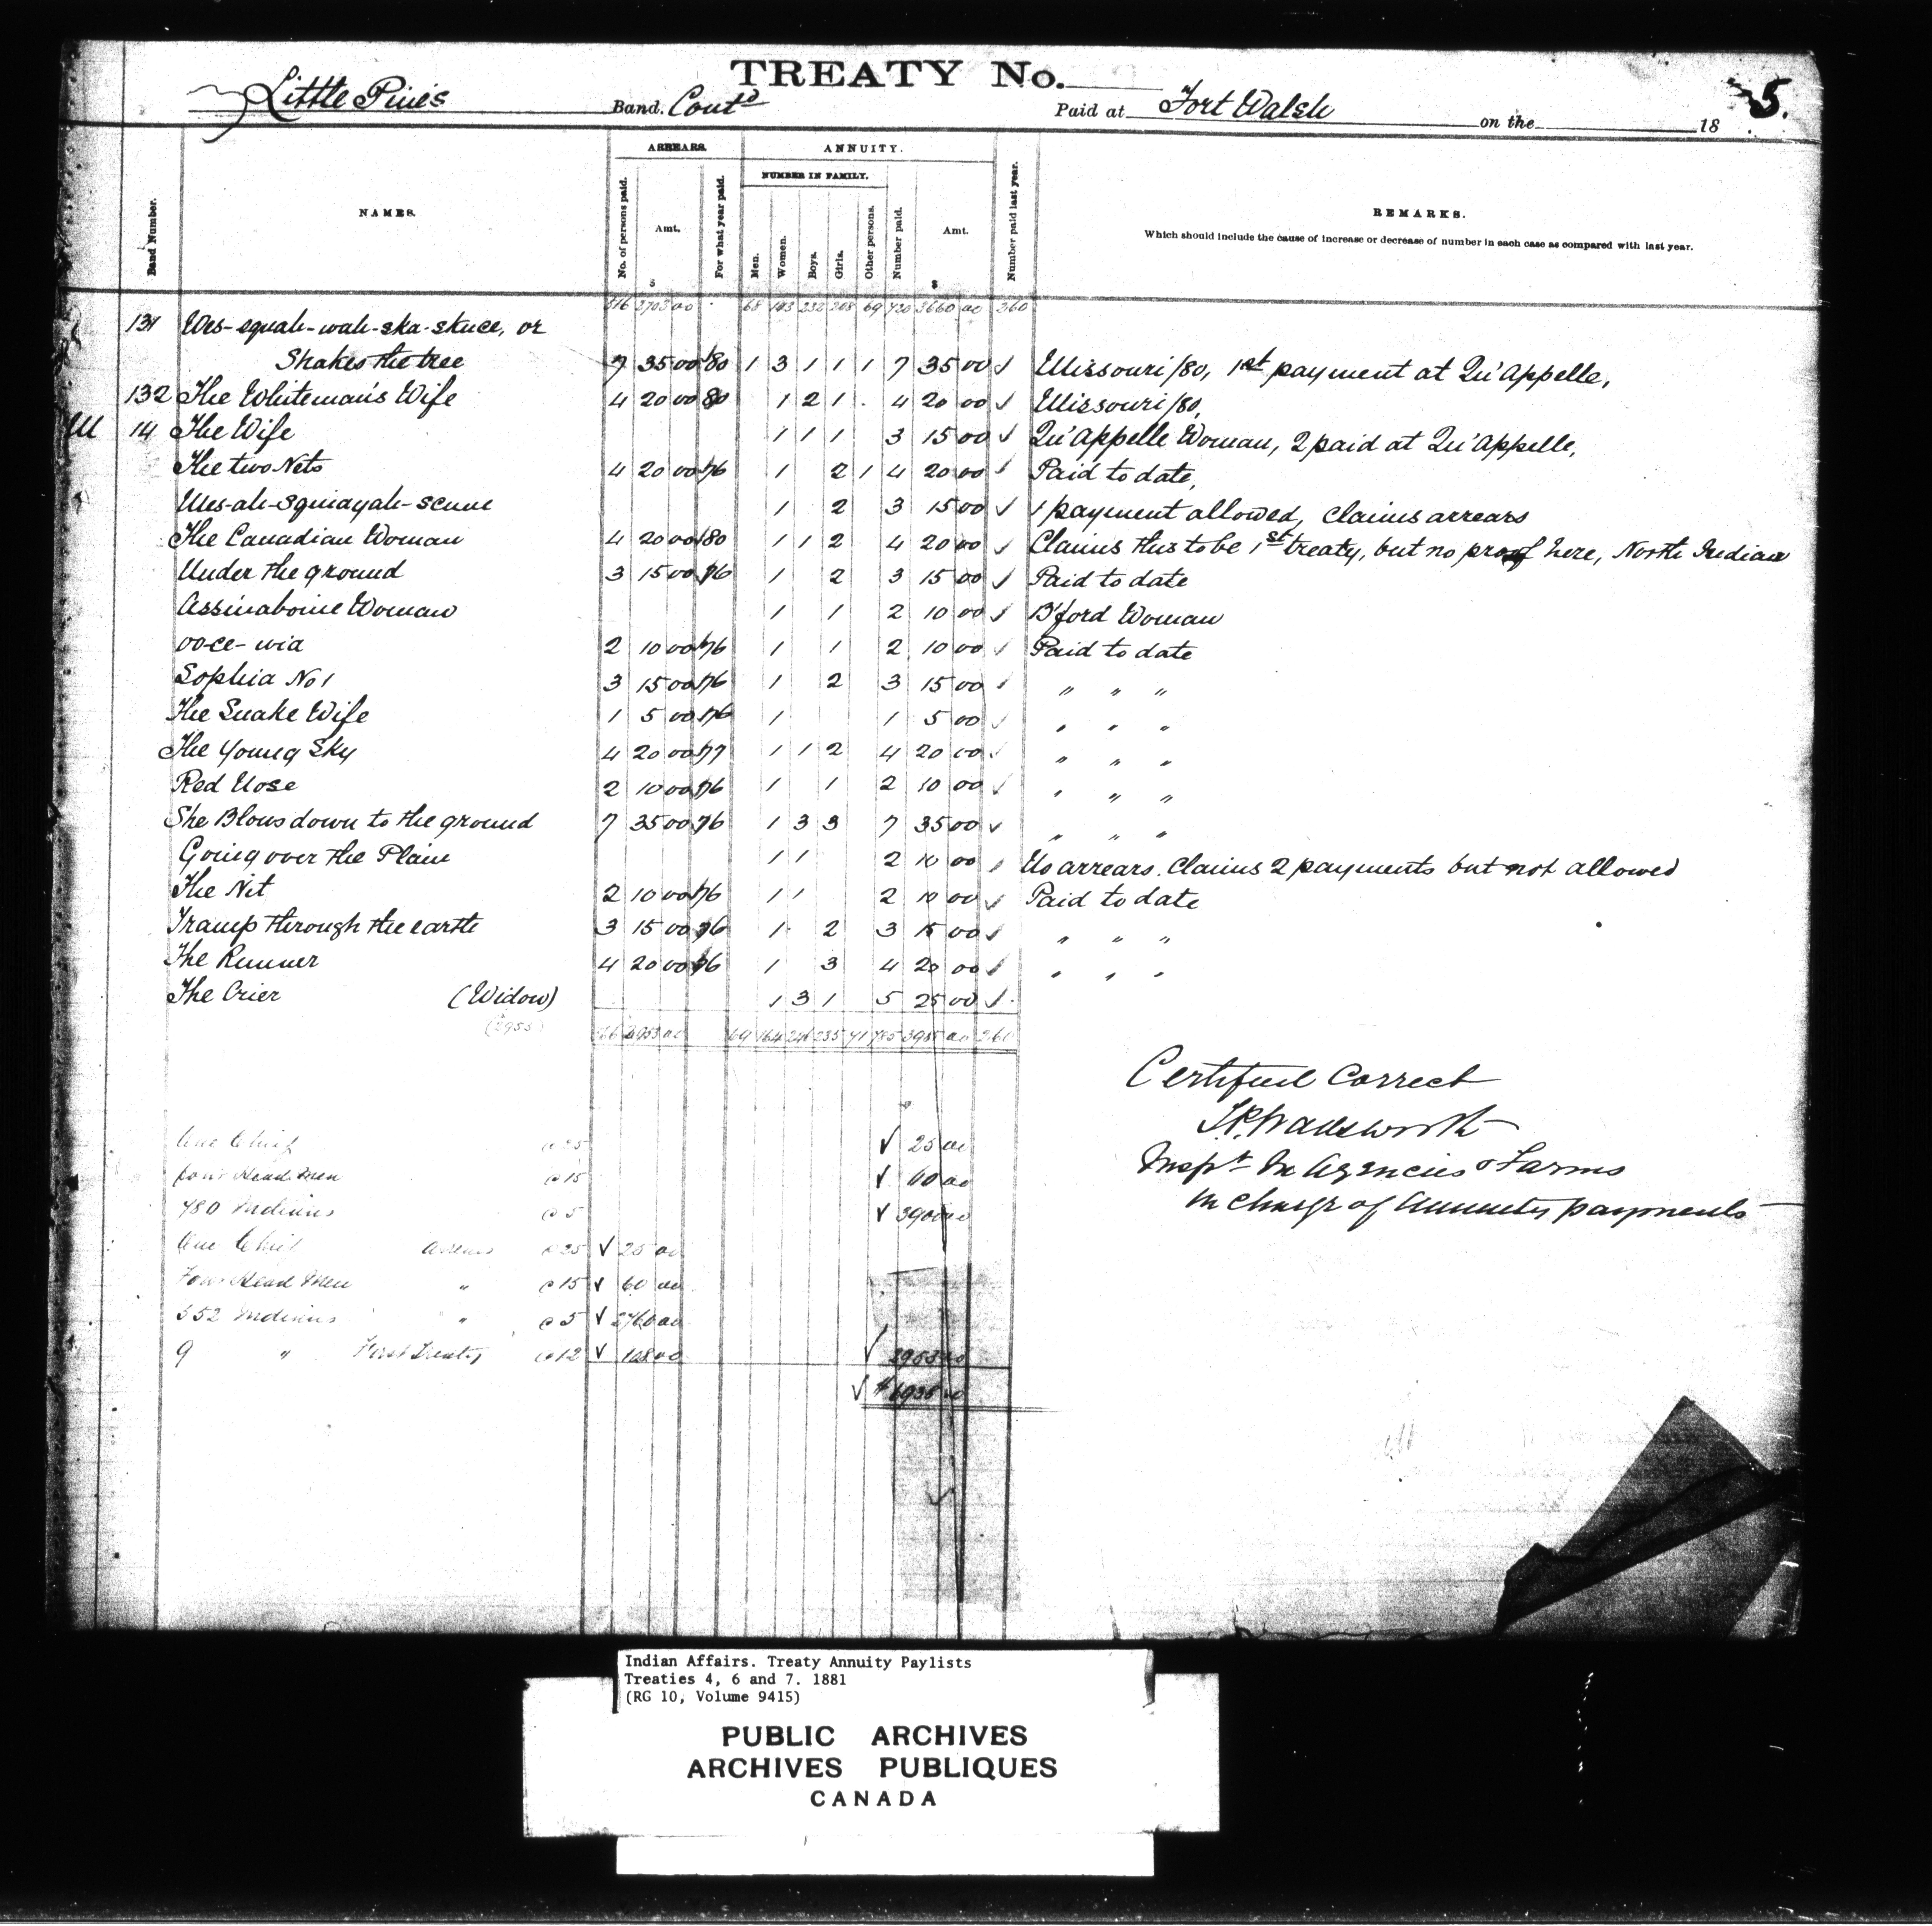 TREATY No.
5.
Little Pine's Band. Cont'd Paid at Fort Walsh on the 18
ARREARS. ANNUITY.
NUMBER IN FAMILY.
Band Number. NAMES. No. of persons paid. Amt. For what year paid. Men. Women. Boys. Girls. Other persons. Number paid. Amt. Number paid last year. REMARKS.
Which should include the cause of increase or decrease of number in each case as compared with last year.
$ $
516 2703 00 68 143 232 208 69 720 3660 00 360
131 Wes-squah-wah-ska-skuce, or
Shakes the tree 7 35 00 /80 1 3 1 1 1 7 35 00 ✓ Missouri/80, 1st payment at Qu'Appelle,
132 The Whiteman's Wife 4 20 00 80 1 2 1 . 4 20 00 ✓ Missouri/80,
14 The Wife 1 1 1 3 15 00 ✓ Qu'Appelle Woman, 2 paid at Qu'Appelle,
The two Nets 4 20 00 /76 1 2 1 4 20 00 ✓ Paid to date,
Mes-ah-squiayah-scum 1 2 3 15 00 ✓ 1 payment allowed, claims arrears
The Canadian Woman 4 20 00 /80 1 1 2 4 20 00 ✓ Claims this to be 1st treaty, but no proof here, North Indian
Under the ground 3 15 00 /76 1 2 3 15 00 ✓ Paid to date
Assinaboine Woman 1 1 2 10 00 ✓ B'ford Woman
oo-ce-wia 2 10 00 /76 1 1 2 10 00 ✓ Paid to date
Sophia No 1 3 15 00 /76 1 2 3 15 00 ✓ " " "
The Snake Wife 1 5 00 /76 1 1 5 00 ✓ " " "
The Young Sky 4 20 00 /77 1 1 2 4 20 00 ✓ " " "
Red Nose 2 10 00 /76 1 1 2 10 00 ✓ " " "
She Blows down to the ground 7 35 00 /76 1 3 3 7 35 00 ✓ " " "
Going over the Plain 1 1 2 10 00 ✓ No arrears. Claims 2 payments but not allowed
The Nit 2 10 00 /76 1 1 2 10 00 ✓ Paid to date
Tramp through the earth 3 15 00 /76 1 2 3 15 00 ✓ " " "
The Runner 4 20 00 /76 1 3 4 20 00 ✓ " " "
The Crier (Widow) 1 3 1 5 25 00 ✓
69 164 235 71 785 3985 00
Certified Correct
T.P. Wadsworth
Inspt In Agencies & Farms
in charge of Annuity payments
One Chief @ 25 ✓ 25 00
four Head Men @ 15 ✓ 60 00
780 Indians @ 5 ✓ 3900 00
One Chief Arrears @ 25 ✓ 25 00
Four Head Men " @ 15 ✓ 60 00
552 Indians " @ 5 ✓ 2760 00
9 " First Treaty @ 12 ✓ 108 00 ✓ 2953 00
✓ $ 6938 00
Indian Affairs. Treaty Annuity Paylists
Treaties 4, 6 and 7. 1881
(RG 10, Volume 9415)
PUBLIC ARCHIVES
ARCHIVES PUBLIQUES
CANADA